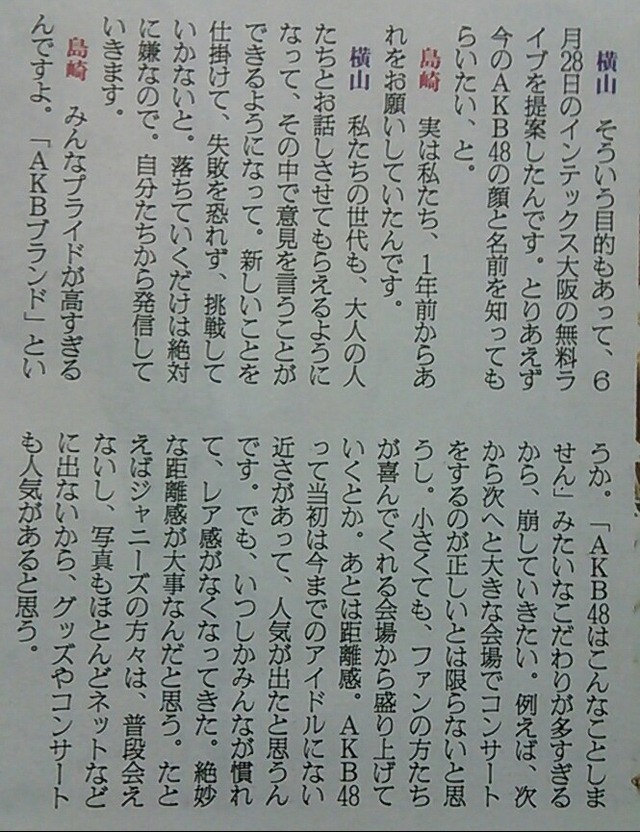 横山　そういう目的もあって、6
月28日のインテックス大阪の無料ラ
イブを提案したんです。とりあえず
今のAKB48の顔と名前を知っても
らいたい、と。
島崎　実は私たち、1年前からあ
れをお願いしていたんです。
横山　私たちの世代も、大人の人
たちとお話しさせてもらえるように
なって、その中で意見を言うことが
できるようになって。新しいことを
仕掛けて、失敗を恐れず、挑戦して
いかないと。落ちていくだけは絶対
に嫌なので。自分たちから発信して
いきます。
島崎　みんなプライドが高すぎる
んですよ。「AKBブランド」とい
うか。「AKB48はこんなことしま
せん」みたいなこだわりが多すぎる
から、崩していきたい。例えば、次
から次へと大きな会場でコンサート
をするのが正しいとは限らないと思
うし。小さくても、ファンの方たち
が喜んでくれる会場から盛り上げて
いくとか。あとは距離感。AKB48
って当初は今までのアイドルにない
近さがあって、人気が出たと思うん
です。でも、いつしかみんなが慣れ
て、レア感がなくなってきた。絶妙
な距離感が大事なんだと思う。たと
えばジャニーズの方々は、普段会え
ないし、写真もほとんどネットなど
に出ないから、グッズやコンサート
も人気があると思う。